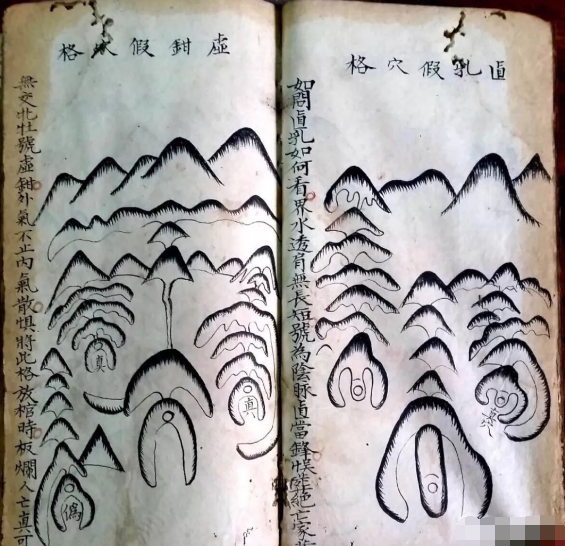 直乳假穴格
如問直乳如何看界水透肩無長短號為陰脉直當鋒悮葬絕亡家
真穴
虛鉗假穴格
無交牝牡號虛鉗外氣不止內氣散惧將此格放棺時板爛人亡真可
真
真
偽